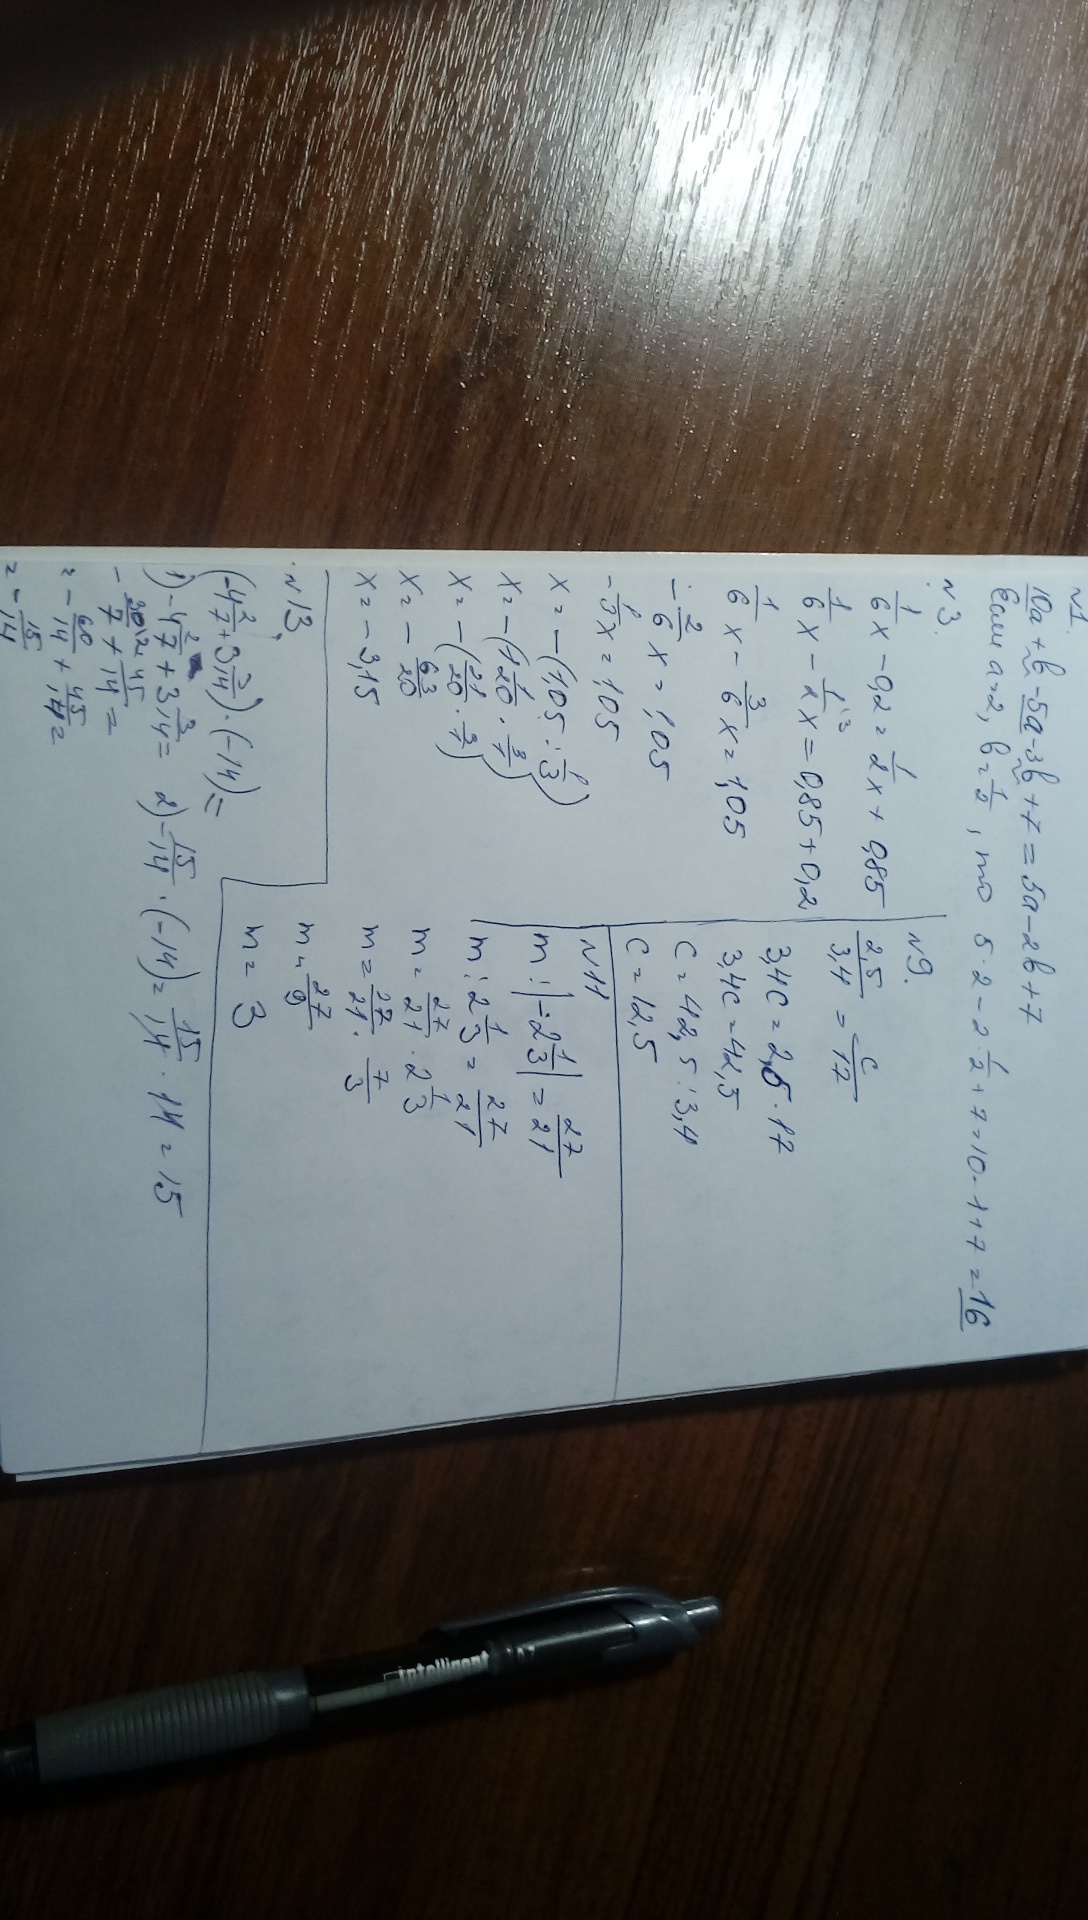 №1.
10a + b - 5a - 3b + 7 = 5a - 2b + 7
Если a=2, b=1/2, то 5·2 - 2·1/2 + 7 = 10 - 1 + 7 = 16
№3.
1/6 x - 0,2 = 1/2 x + 0,85
1/6 x - 1/2 \3 x = 0,85 + 0,2
1/6 x - 3/6 x = 1,05
- 2/6 x = 1,05
- 1/3 x = 1,05
x = - (1,05 : 1/3)
x = - (1 1/20 · 3/1)
x = - (21/20 · 3/1)
x = - 63/20
x = - 3,15
№9.
2,5/3,4 = c/17
3,4c = 2,5 · 17
3,4c = 42,5
c = 42,5 : 3,4
c = 12,5
№11
m : |-2 1/3| = 27/21
m : 2 1/3 = 27/21
m = 27/21 · 2 1/3
m = 27/21 · 7/3
m = 27/9
m = 3
№13.
(-4 2/7 + 3 3/14) · (-14) =
1) -4 2/7 + 3 3/14 =
- 30\2/7 + 45/14 =
= - 60/14 + 45/14 =
= - 15/14
2) - 15/14 · (-14) = 15/14 · 14 = 15
intelligent 0.7